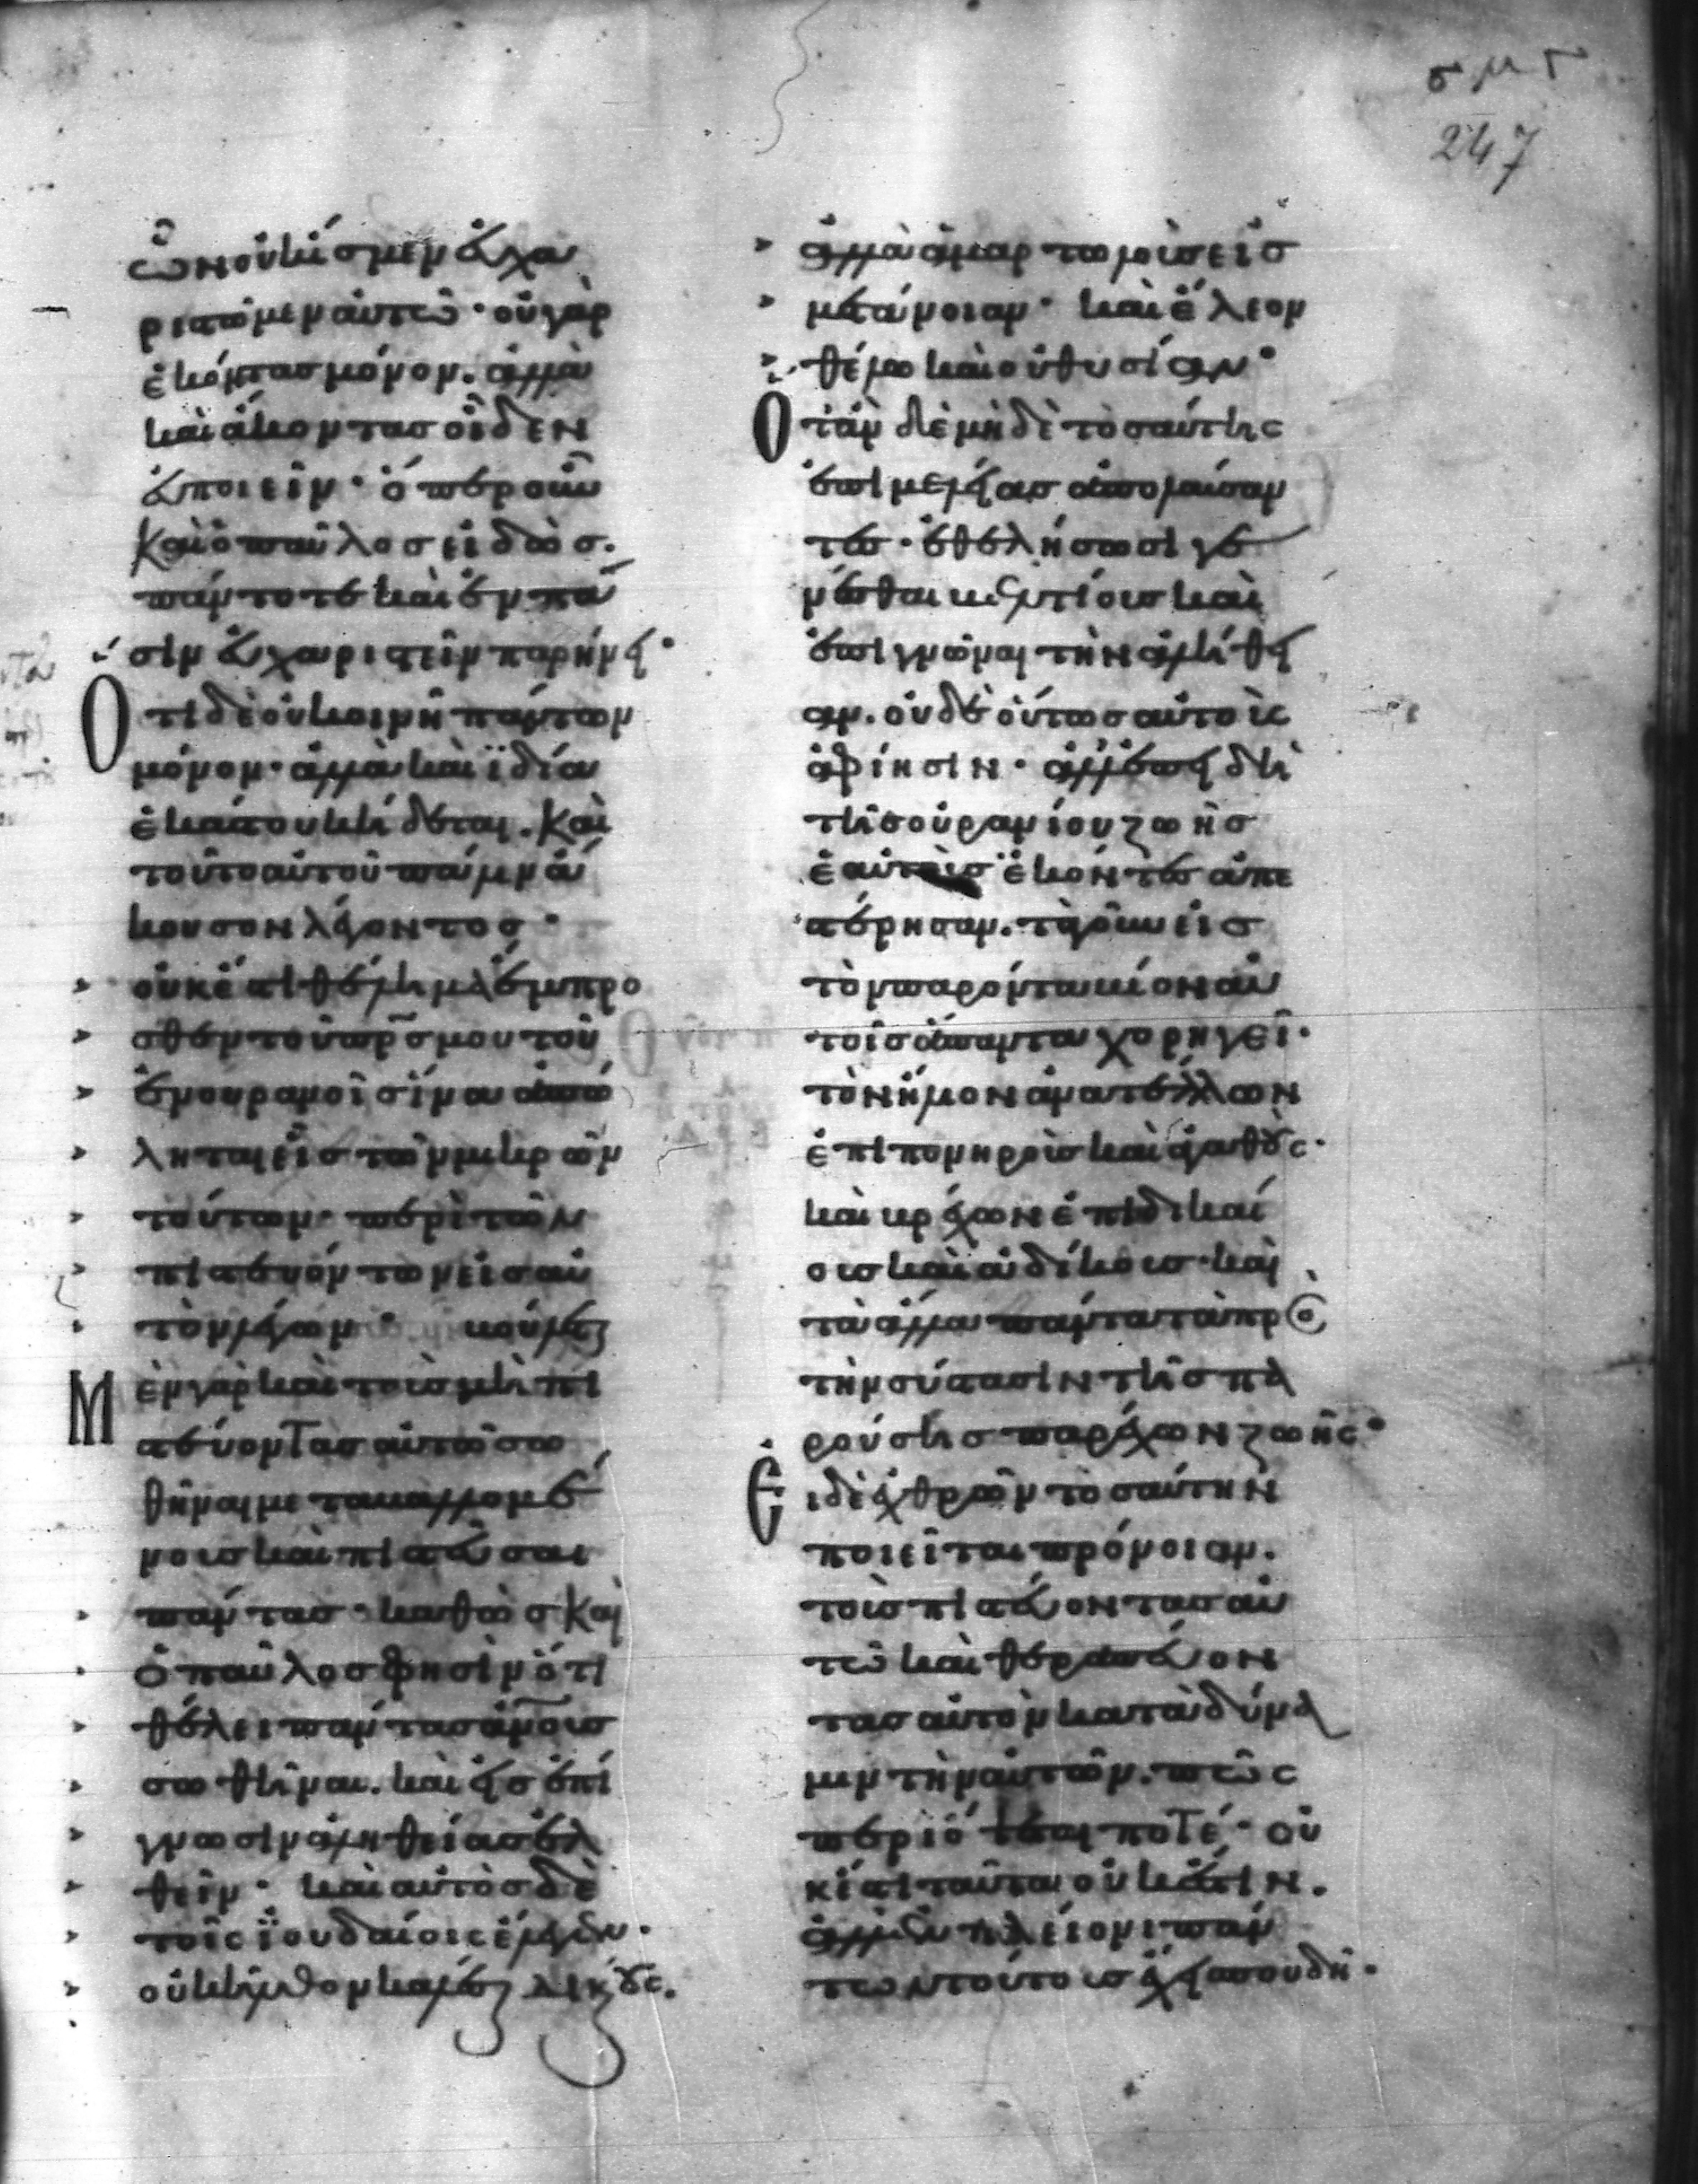 σμΓ
247
ὧν οὐκ ἴσμεν εὐχα
ριστῶμεν αὐτῷ· οὐ γὰρ
ἑκόντας μόνον. ἀλλὰ
καὶ ἄκοντας οἶδεν
εὐποιεῖν· ὅπερ οὖν
καὶ ὁ παῦλος εἰδὼς.
πάντοτε καὶ ἐν πα
σὶν εὐχαριστεῖν παρήνει·
Ὅτι δὲ οὐ κοινῆ πάντων
μόνον· ἀλλὰ καὶ ϊδία
ἑκάστου κήδεται. καὶ
τοῦτο αὐτοῦ πάλιν ἄ
κουσον λέγοντος·
οὐκ ἔστι θέλημα ἔμπρο
σθεν τοῦ πρσ μου τοῦ
ἐν οὐρανοῖς ἵνα ἀπό
ληται εἷς τῶν μικρῶν
τούτων· περὶ τῶν
πιστευόντων εἰς αὐ
τὸν λέγων· κούλεται
Μὲν γὰρ καὶ τοὺς μὴ πι
στεύοντας αὐτῶ σω
θῆναι μεταβαλλομέ
νους καὶ πιστεῦσαι
πάντας· καθὼς καὶ
ὁ παῦλος φησὶν ὅτι
θέλει πάντας ἀνους
σωθῆναι. καὶ εἰς ἐπί
γνωσιν ἀληθείας ἐλ
θεῖν· καὶ αὐτὸς δὲ
τοῖς ϊουδαίοις ἔλεγεν·
οὐκ ἦλθον καλέσαι δικαίους.
ἀλλὰ ἁμαρτωλοὺς εἰς
μετάνοιαν· καὶ ἔλεον
θέλω καὶ οὐ θυσίαν·
Ὅταν δὲ μηδὲ τοσαύτης
ἐπιμελείας ἀπολαύσαν
τες· ἐθελήσωσι γε
νέσθαι βελτίους καὶ
ἐπιγνῶναι τὴν ἀλήθει
αν. οὐδὲ οὕτως αὐτοὺς
ἀφίησιν· ἀλλ' ἐπειδὴ
τῆς οὐρανίου ζωῆς
ἑαυτοὺς ἑκόντες ἀπε
στέρησαν. τὰ γοῦν εἰς
τὸν παρόντα βίον αὐ
τοῖς ἅπαντα χορηγεῖ·
τὸν ἥλιον ἀνατέλλων
ἐπὶ πονηροὺς καὶ ἀγαθούς·
καὶ βρέχων ἐπὶ δικαί
ους καὶ ἀδίκους· καὶ
τὰ ἄλλα πάντα τὰ πρὸς
τὴν σύστασιν τῆς πα
ρούσης παρέχων ζωῆς·
Εἰ δὲ ἐχθρῶν τοσαύτην
ποιεῖται πρόνοιαν.
τοὺς πιστεύοντας αὐ
τῶ καὶ θεραπεύον
τας αὐτὸν κατὰ δύνα
μιν τὴν αὐτῶν. πῶς
περιόψεται ποτέ· οὐ
κ ἔστι ταῦτα οὐκ ἔστιν.
ἀλλ' ἐν πλείονι πάν
των τούτους ἔχει σπουδῆ·